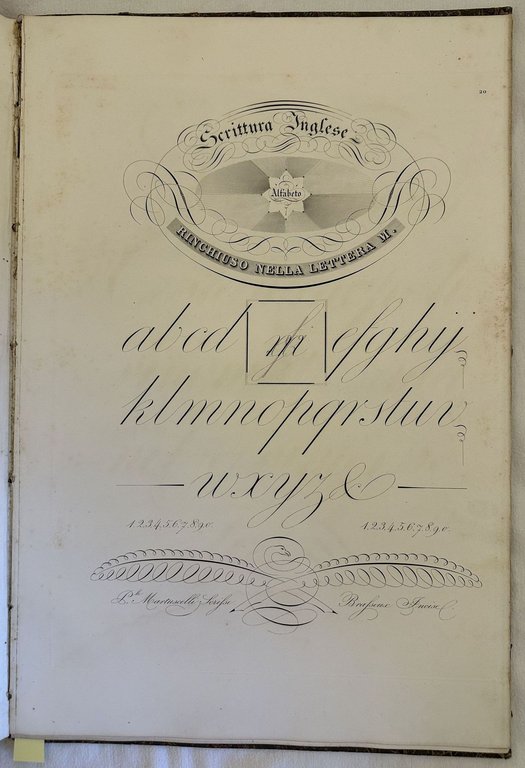 20
Scrittura Inglese
Alfabeto
RINCHIUSO NELLA LETTERA M.
a b c d m e f g h ij
k l m n o p q r s t u v
w x y z &
1.2.3.4.5.6.7.8.9.0. 1.2.3.4.5.6.7.8.9.0.
Martuscelli Scrisse